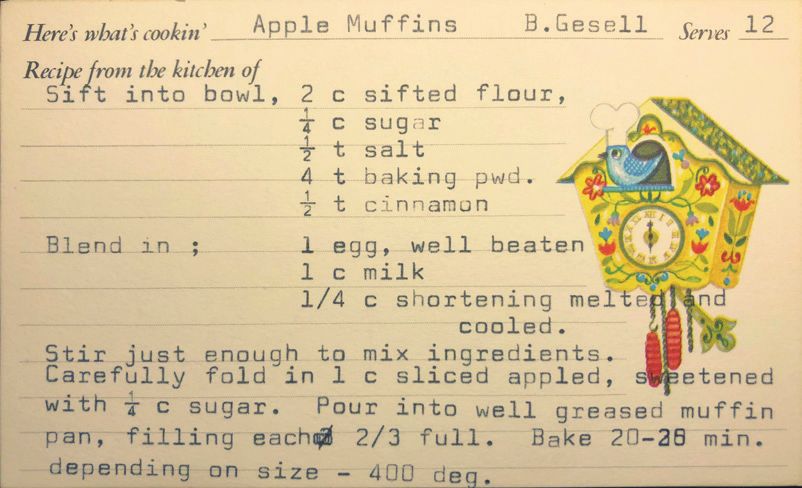 Here's what's cookin' Apple Muffins B.Gesell Serves 12
Recipe from the kitchen of
Sift into bowl, 2 c sifted flour,
¼ c sugar
½ t salt
4 t baking pwd.
½ t cinnamon
Blend in ; 1 egg, well beaten
1 c milk
1/4 c shortening melted and
cooled.
Stir just enough to mix ingredients.
Carefully fold in 1 c sliced appled, sweetened
with ¼ c sugar. Pour into well greased muffin
pan, filling each 2/3 full. Bake 20-25 min.
depending on size - 400 deg.